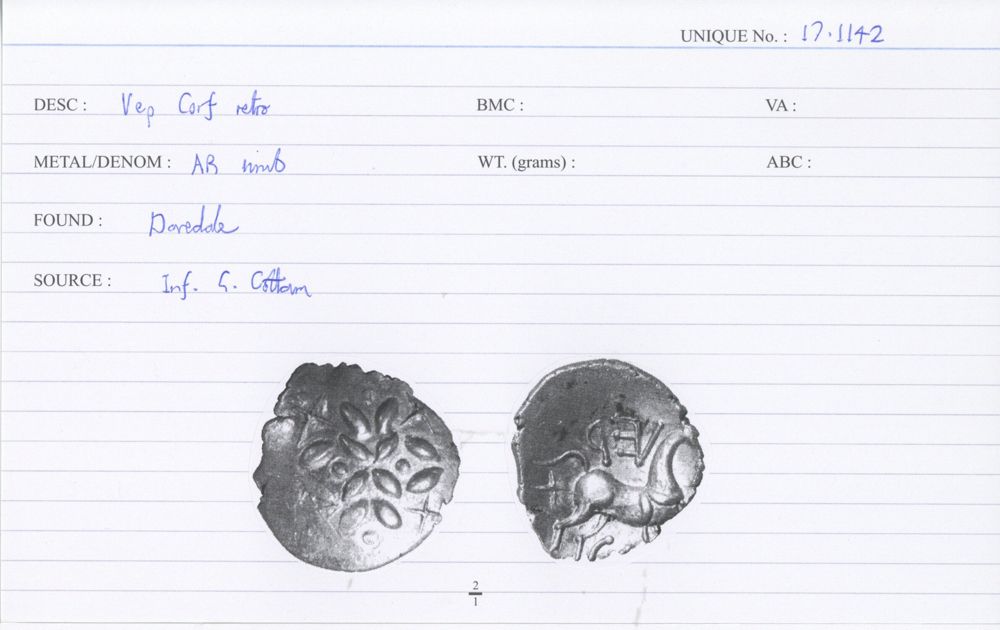 UNIQUE No. : 17.1142
DESC : Vep Corf retro BMC : VA :
METAL/DENOM : AR unit WT. (grams) : ABC :
FOUND : Dovedale
SOURCE : Inf. G. Cottam
VEP
2
1